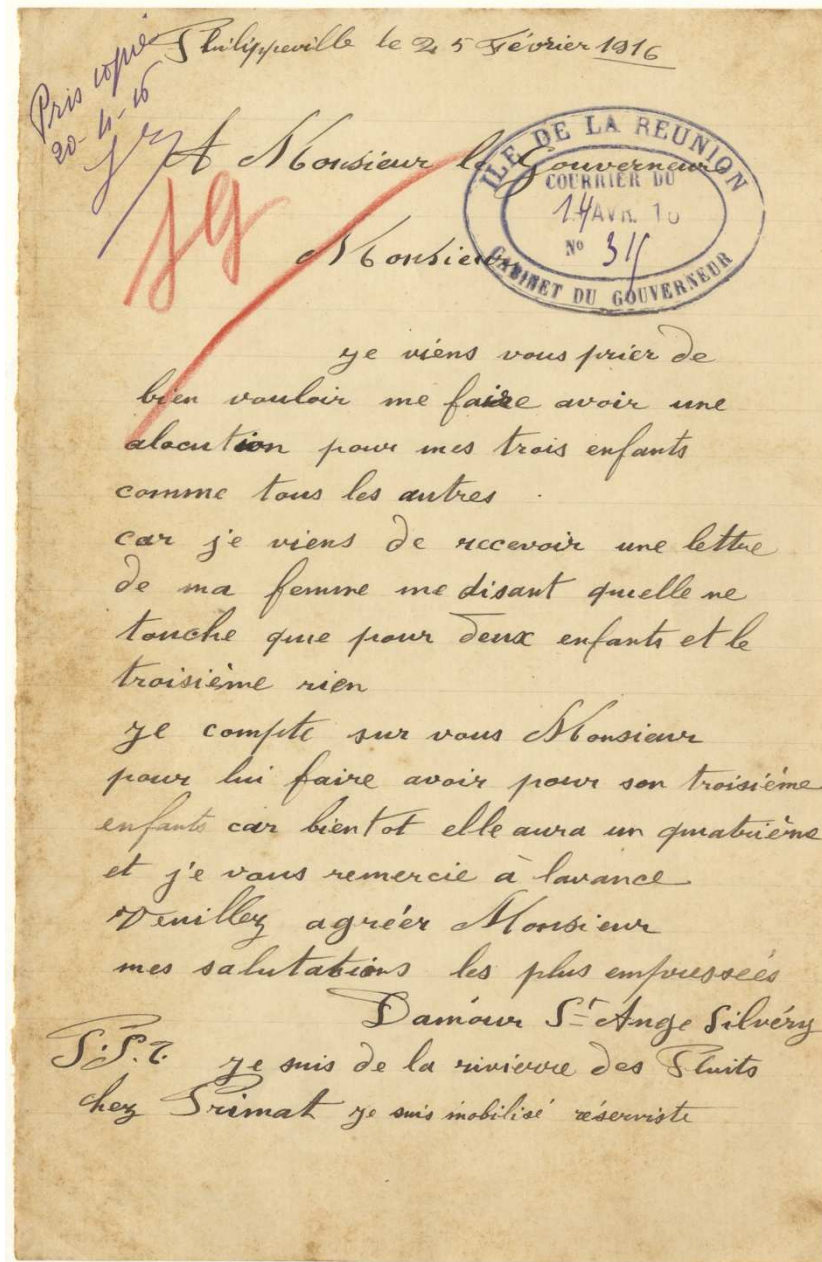 Philippeville le 25 Février 1916
Pris copie
20-4-16
A Monsieur le Gouverneur
ILE DE LA REUNION
COURRIER DU
14 AVR. 16
N°
CABINET DU GOUVERNEUR
Monsieur
je viens vous prier de
bien vouloir me faire avoir une
alocution pour mes trois enfants
comme tous les autres.
car je viens de recevoir une lettre
de ma femme me disant quelle ne
touche que pour deux enfants et le
troisième rien
je compte sur vous Monsieur
pour lui faire avoir pour son troisiéme
enfants car bientot elle aura un quatrième
et j'e vous remercie à lavance
Veuillez agréér Monsieur
mes salutations les plus empresseés
Damour St Ange Silvéry
je suis de la rivierre des Pluits
chez Primat je suis mobilisé réserviste